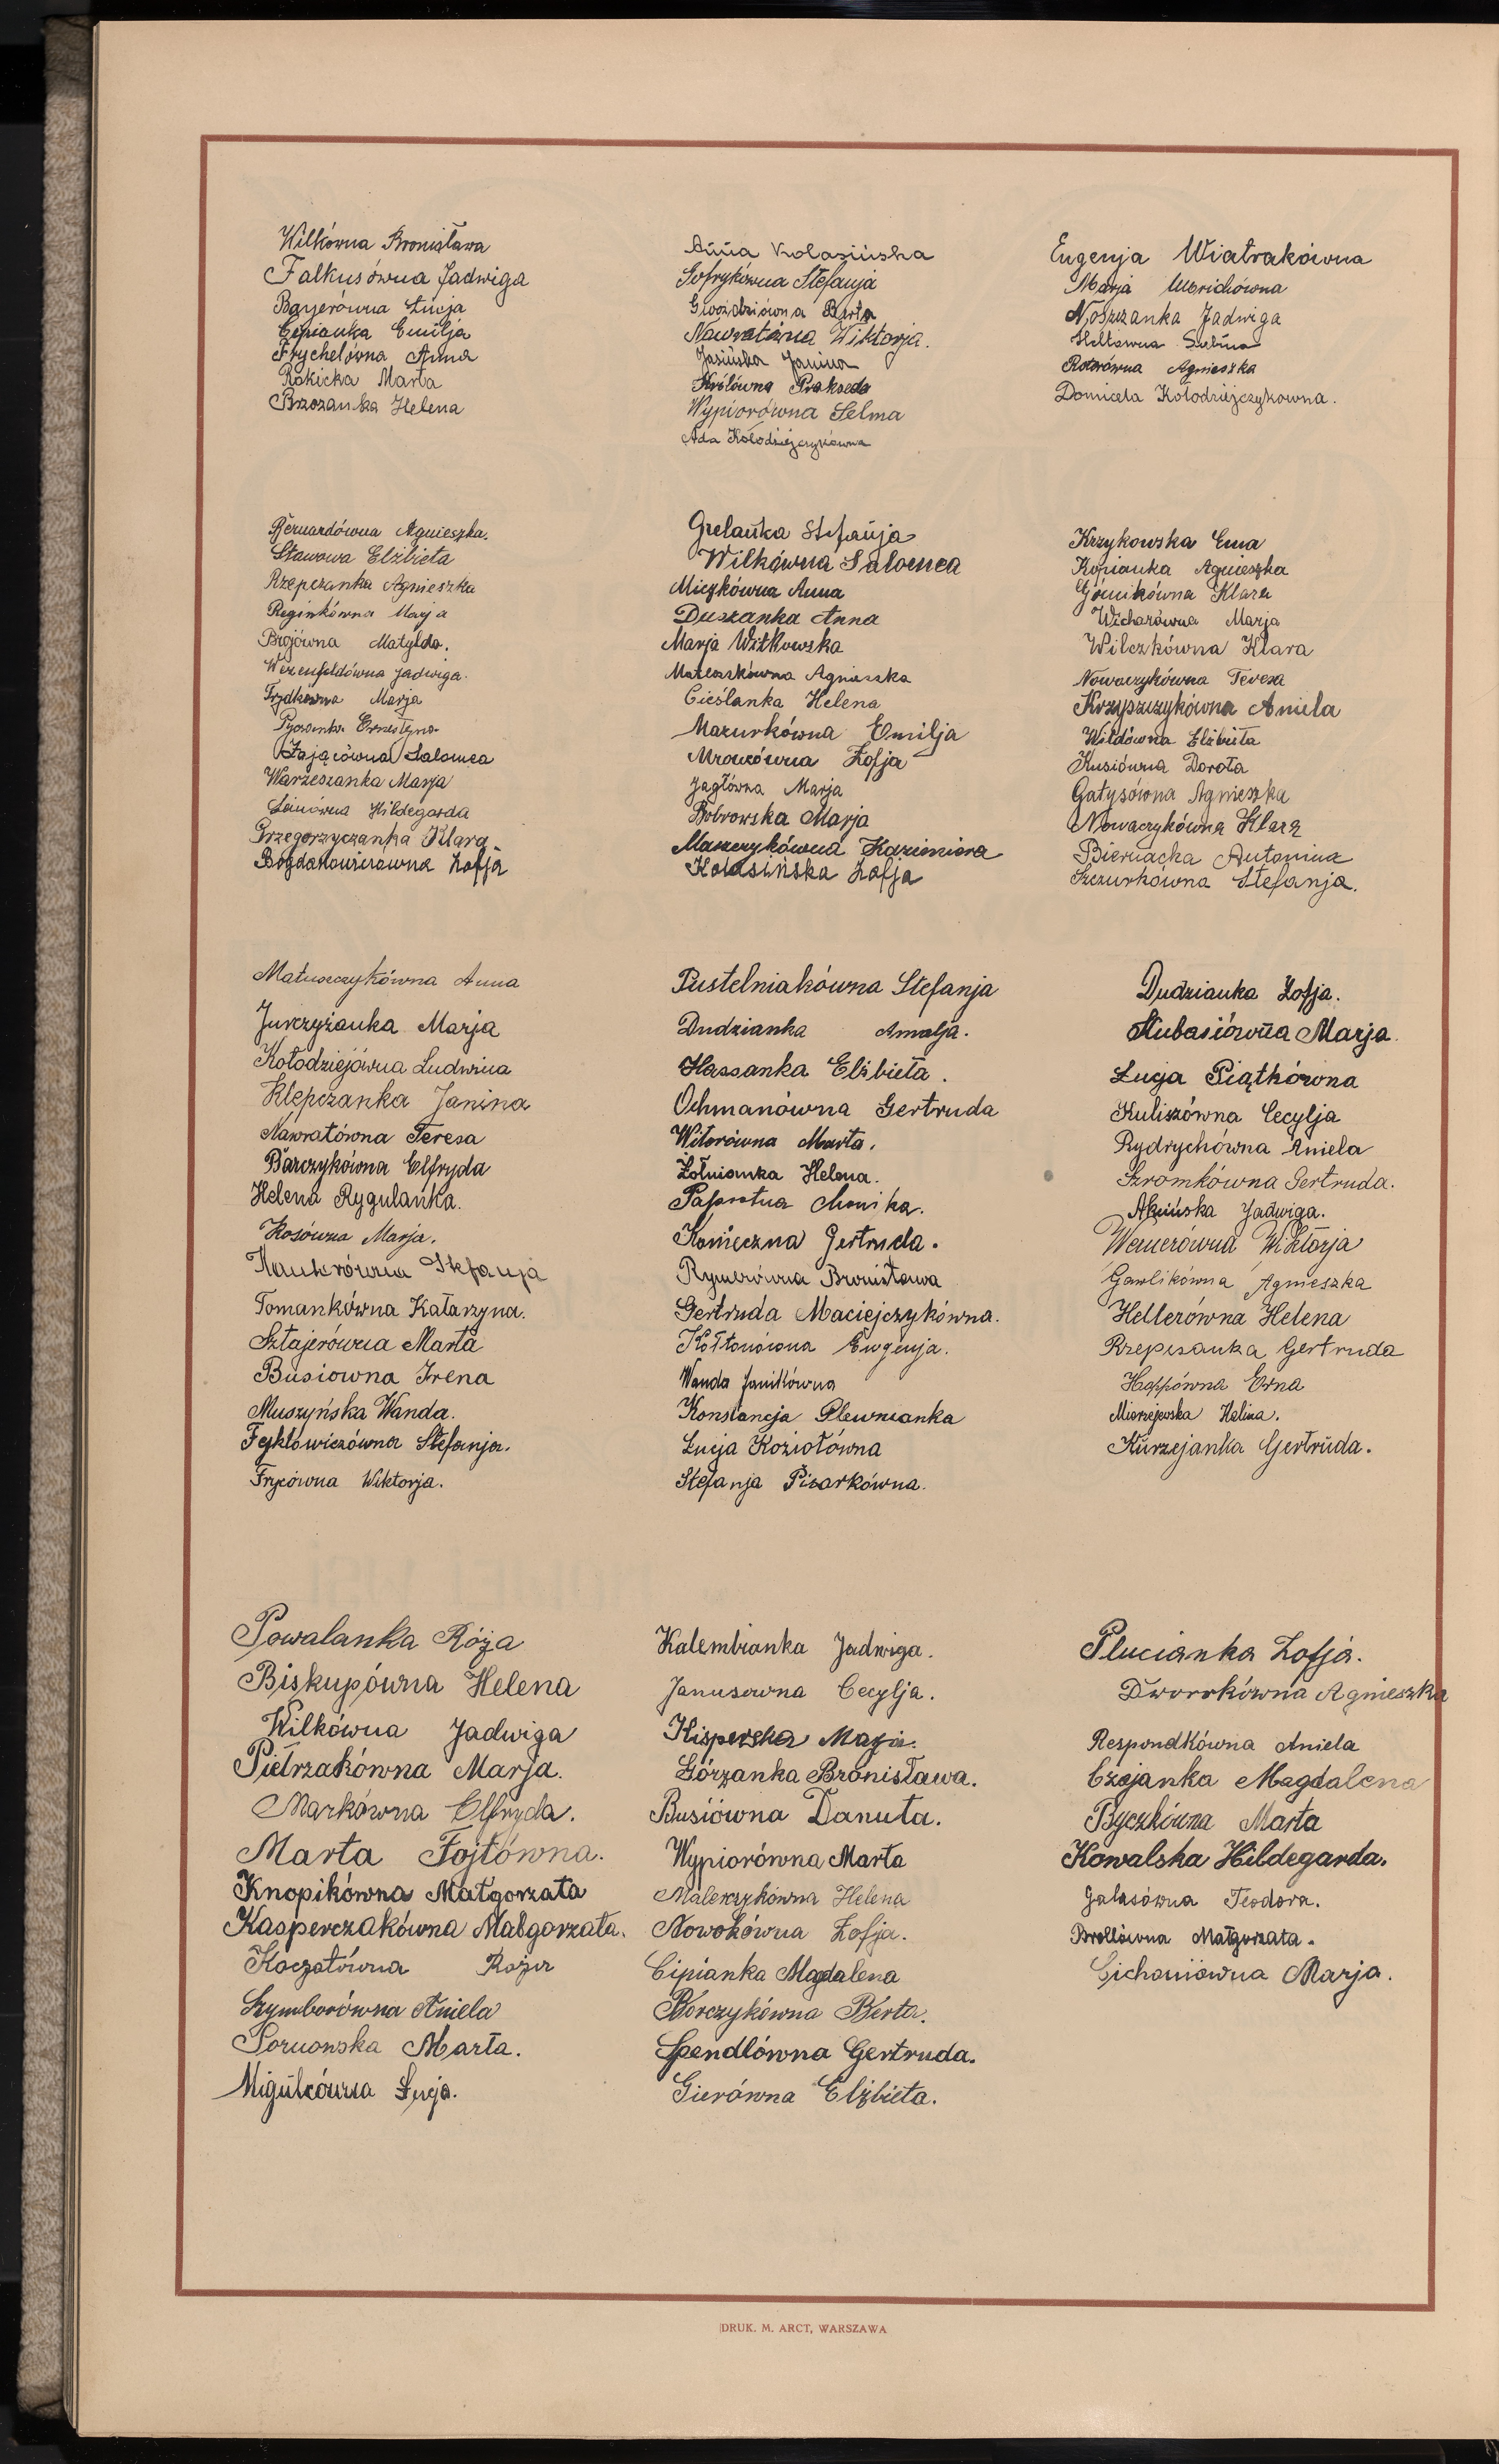 Wilkówna Bronisława
Falkusówna Jadwiga
Bayerówna Łucja
Cipianka Emilja
Frychelówna Anna
Rokicka Marta
Brzozanka Helena
Anna Kolasińska
Sofrykówna Stefanja
Gwoździówna Berta
Nawratówna Wiktorja.
Jasińska Janina
Królówna Prakseda
Wypiorówna Selma
Ada Kołodziejczykówna
Eugenja Wiatrakówna
Marja Ulbrichówna
Noszczanka Jadwiga
Sabina
Rotorówna Agnieszka
Domicela Kołodziejczykowna.
Bernardówna Agnieszka.
Stawowa Elżbieta
Rzepczanka Agnieszka
Reginkówna Marja
Brojówna Matylda.
Wezenfeldówna Jadwiga.
Frydkówna Marja
Ernestyna
Zającówna Salomea
Warzeszanka Marja
Hildegarda
Grzegorzyczanka Klara
Bogdanowiczówna Zofja
Grelanka Stefanja
Wilkówna Salomea
Mieszkówna Anna
Duszanka Anna
Marja Witkowska
Mateoszkówna Agnieszka
Cieślanka Helena
Mazurkówna Emilja
Mrowcówna Zofja
Jagłówna Marja
Bobrowska Marja
Maszczykówna Kazimiera
Kolasińska Zofja
Krzykowska Ema
Kopianka Agnieszka
Górnikówna Klara
Wicharówna Marja
Wilczkówna Klara
Nowaczykówna Teresa
Krzyszczykówna Aniela
Wildówna Elżbieta
Kusiówna Dorota
Gatysówna Agnieszka
Nowaczykówna Klara
Biernacka Antonina
Szczurkówna Stefanja.
Matuszczykówna Anna
Jurczyżanka Marja
Kołodziejówna Ludwina
Klepczanka Janina
Nawratówna Teresa
Barczykówna Elfryda
Helena Rygulanka.
Kosówna Marja.
Stefanja
Tomankówna Katarzyna.
Sztajerówna Marta
Busiowna Irena
Muszyńska Wanda.
Fejklowiczówna Stefanja.
Frycówna Wiktorja.
Pustelniakówna Stefanja
Dudzianka Amalja.
Hassanka Elżbieta.
Ochmanówna Gertruda
Witorówna Marta.
Żołnianka Helena.
Paprotna Monika.
Konieczna Gertruda.
Rymerówna Bronisława
Gertruda Maciejczykówna.
Kołtonówna Eugenja.
Wanda Janikówna
Konstancja Plewnianka
Łucja Koziołówna
Stefanja Pisarkówna.
Dudzianka Zofja.
Kubasiówna Marja.
Łucja Piątkówna
Kuliszówna Cecylja
Rydrychówna Aniela
Szromkówna Gertruda.
Jadwiga.
Wernerówna Wiktorja
Gawlikówna Agnieszka
Hellerówna Helena
Rzepczanka Gertruda
Hoppówna Erna
Mierzejewska Halina.
Kurzejanka Gertruda.
Powalanka Róża
Biskupówna Helena
Wilkówna Jadwiga
Pietrzakówna Marja.
Markówna Elfryda.
Marta Fojtówna.
Knopikówna Małgorzata
Kasperczakówna Małgorzata.
Koczotówna Róża
Szymborówna Aniela
Poruowska Marta.
Migulcówna Łucja.
Kalembianka Jadwiga.
Janusowna Cecylja.
Kisperska Marja.
Górzanka Bronisława.
Busiówna Danuta.
Wypiorówna Marta
Malerzykówna Helena
Nowokówna Zofja.
Cipianka Magdalena
Borczykówna Berta.
Spendlówna Gertruda.
Gierówna Elżbieta.
Plucianka Zofja.
Dworokówna Agnieszka
Respondkówna Aniela
Czojanka Magdalena
Byczkówna Marta
Kowalska Hildegarda.
Galasówna Teodora.
Brollówna Małgorzata.
Cichoniówna Marja.
DRUK. M. ARCT, WARSZAWA